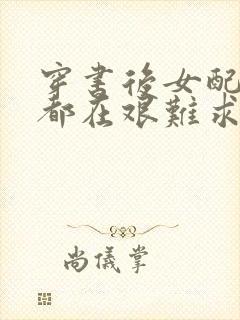 穿書後女配
都在艱難求
尚儀掌